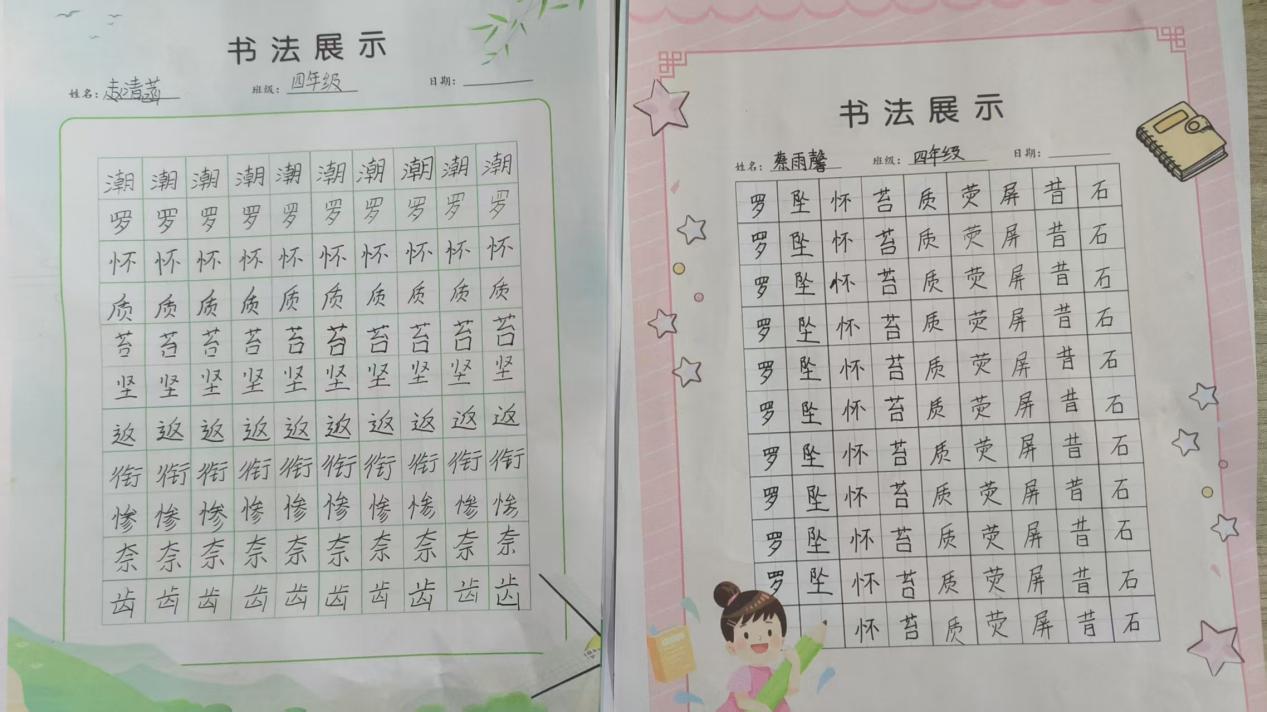 书法展示
姓名：赵清菡 班级：四年级 日期：
潮潮潮潮潮潮潮潮潮潮
罗罗罗罗罗罗罗罗罗罗
怀怀怀怀怀怀怀怀怀怀
质质质质质质质质质质
苔苔苔苔苔苔苔苔苔苔
坚坚坚坚坚坚坚坚坚坚
返返返返返返返返返返
衔衔衔衔衔衔衔衔衔衔
惨惨惨惨惨惨惨惨惨惨
奈奈奈奈奈奈奈奈奈奈
齿齿齿齿齿齿齿齿齿齿
书法展示
姓名：蔡雨馨 班级：四年级 日期：
罗坠怀苔质荧屏昔石
罗坠怀苔质荧屏昔石
罗坠怀苔质荧屏昔石
罗坠怀苔质荧屏昔石
罗坠怀苔质荧屏昔石
罗坠怀苔质荧屏昔石
罗坠怀苔质荧屏昔石
罗坠怀苔质荧屏昔石
罗坠怀苔质荧屏昔石
罗坠怀苔质荧屏昔石
怀苔质荧屏昔石